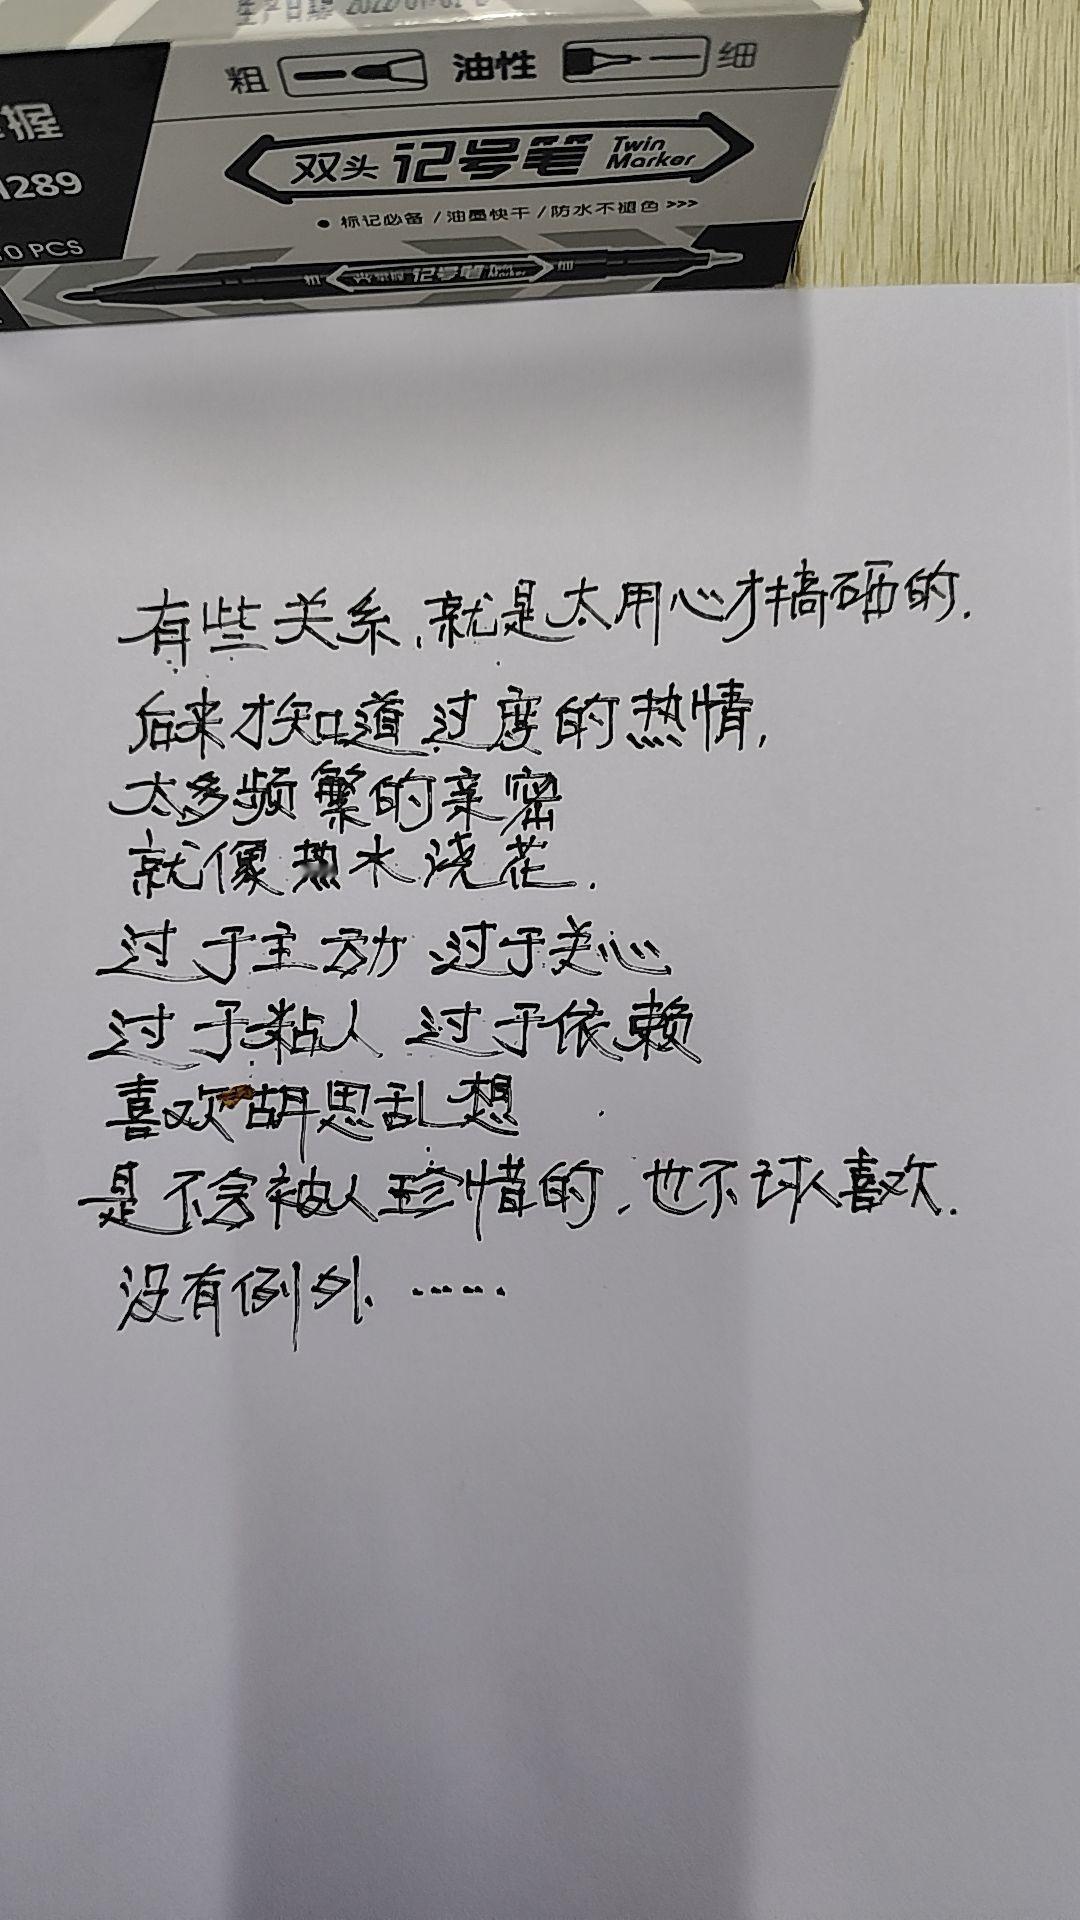 生产日期
粗 油性 细
握
双头 记号笔 Twin Marker
1289
标记必备 / 油墨快干 / 防水不褪色 >>>
0 PCS
记号笔
有些关系,就是太用心才搞砸的.
后来才知道过度的热情,
太多频繁的亲密
就像热水浇花.
过于主动 过于关心
过于粘人 过于依赖
喜欢胡思乱想
是不会被人珍惜的,也不讨人喜欢.
没有例外.……